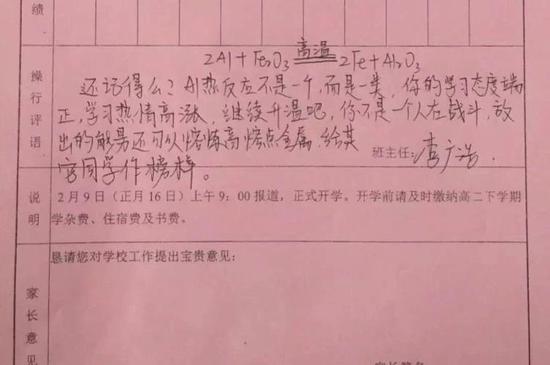 绩
2Al+Fe₂O₃ 高温 2Fe+Al₂O₃
操行评语
还记得么？Al热反应不是一个，而是一类，你的学习态度端
正，学习热情高涨，继续升温吧，你不是一个人在战斗，放
出的能量还可以熔炼高熔点金属，给其
它同学作榜样。
班主任：李广浩
说明
2月9日（正月16日）上午9：00报道，正式开学。开学前请及时缴纳高二下学期
学杂费、住宿费及书费。
恳请您对学校工作提出宝贵意见：
家长意见